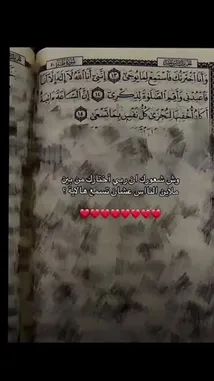 وَأَنَا ٱخْتَرْتُكَ فَٱسْتَمِعْ لِمَا يُوحَىٰٓ ١٣ إِنَّنِىٓ أَنَا ٱللَّهُ لَآ إِلَٰهَ إِلَّآ أَنَا۠
فَٱعْبُدْنِى وَأَقِمِ ٱلصَّلَوٰةَ لِذِكْرِىٓ ١٤ إِنَّ ٱلسَّاعَةَ ءَاتِيَةٌ
أَكَادُ أُخْفِيهَا لِتُجْزَىٰ كُلُّ نَفْسٍۭ بِمَا تَسْعَىٰ ١٥
وش شعورك ان ربي أختارك من بين
ملاين الناس عشان تسمع هالاية ؟
❤️❤️❤️❤️❤️❤️❤️❤️❤️